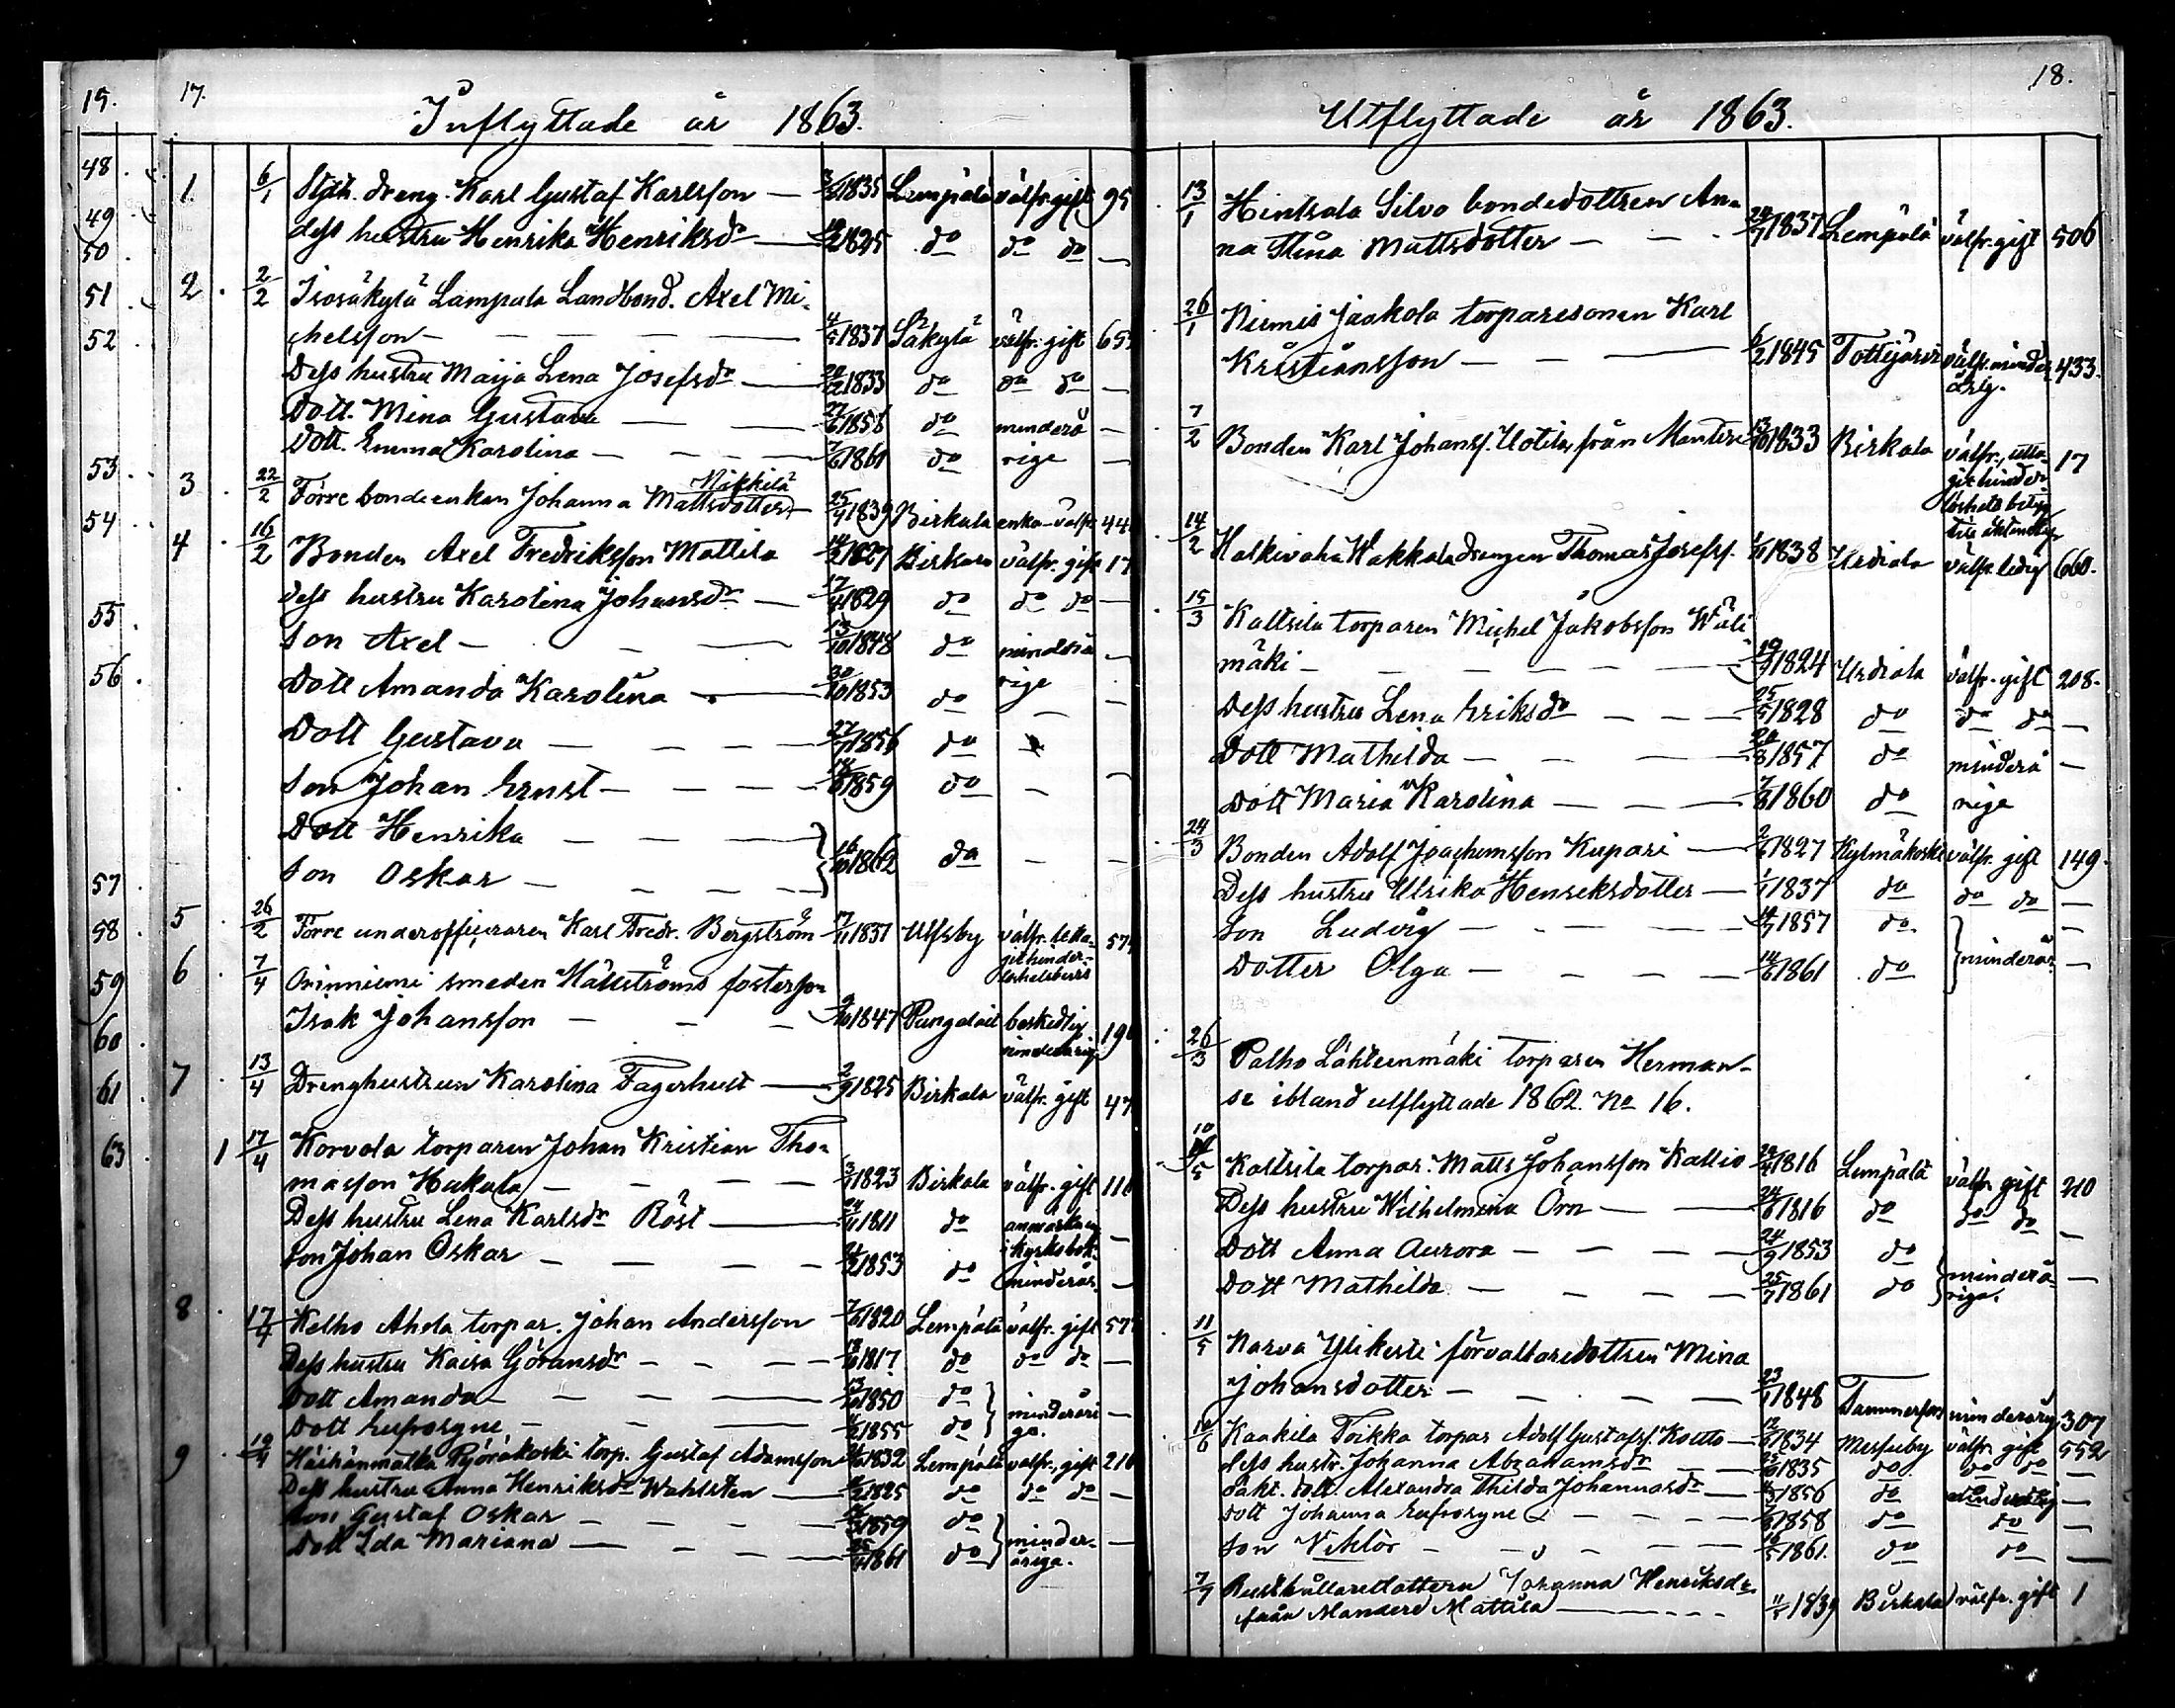 19.
48
49
50
51
52
53
54
55
56
57
58
59
60
61
63
17.
Inflyttade år 1863.
1. 6/1 dreng. Karl Gustaf Karlsson — 1835 Lempälä välfr. gift 95
dess hustru Henrika Henriksdr — 1825 do do do —
2. 2/2 Isosäkylä Lampala Landbond. Axel Mi-
chelsson — 1837 Säkylä välfr. gift
Dess hustru Maija Lena Josefsdr — 1833 do do do —
Dott. Mina Gustava — 1858 do minderå —
Dott. Emma Karolina — 1861 do rige —
Mikkilä
3. 22/2 Förre bondeenkan Johanna Mattsdotter — 25/4 1839 Birkala enka välfr.
4. 16/2 Bonden Axel Fredriksson Mattila 1827 Birkala välfr. gift 17
dess hustru Karolina Johansdr — 17/4 1829 do do do —
Son Axel — 13/10 1848 do minderå —
Dott Amanda Karolina — 30/10 1853 do rige —
Dott Gustava — 27/7 1856 do —
Son Johan Ernst — 1859 do — —
Dott Henrika —
Son Oskar — } 16/10 1862 do — —
5. 26/2 Förre underofficeraren Karl Fredr. Bergström 1831 Ulfsby välfr. utta-
git hinder-
6. 7/4 Orinniemi smeden Hällströms fosterson
Isak Johansson — 9/10 1847 Pungalait beskedlig
minderårig
7. 13/4 Drenghustrun Karolina Fagerhult — 2/9 1825 Birkala välfr. gift 47
1 17/4 Korvola torparen Johan Kristian Tho-
masson Hakala — 1823 Birkala välfr. gift
Dess hustru Lena Karlsdr Röst — 24/11 1811 do anmärkning —
i kyrkobok.
Son Johan Oskar — 1853 do minderår. —
8. 17/4 Kelho Ahola torpar. Johan Andersson 1820 Lempälä välfr. gift 57
Dess hustru Kaisa Göransdr — 1817 do do do —
Dott Amanda — 1850 do } minderåri —
Dott Eufrosyne — 1855 do ga.
9. 19/4 Häihänmatka Pyöräkoski torp. Gustaf Adamsson 1832 Lempälä välfr. gift 216
Dess hustru Anna Henriksdr Wahlsten — 1825 do do do —
Son Gustaf Oskar — 1859 do } minder- —
Dott Ida Mariana — 1861 do åriga.
18.
Utflyttade år 1863.
13/1 Hintsala Silvo bondedottren An-
na Stina Mattsdotter — 1837 Lempälä välfr. gift 506
26/1 Niemis Jaakola torparesonen Karl
Kristiansson — 6/2 1845 Tottijärvi välfr. minder 433.
årig.
7/2 Bonden Karl Johanss. Uotila från Mantere 1833 Birkala välfr., utta- 17
git hinder-
löshets betyg
till äktenskap
14/2 Halkivaha Wakkala drengen Thomas Josefss. 1838 Urdiala välfr. ledig 660.
15/3 Kaltsila torparen Michel Jakobsson Wäli
mäki — 1824 Urdiala välfr. gift 208.
Dess hustru Lena Eriksdr — 25/5 1828 do do do —
Dott Mathilda — 20/8 1857 do minderå —
Dott Maria Karolina — 1860 do rige
24/3 Bonden Adolf Joachimsson Kupari — 1827 Kylmäkoski välfr. gift 149.
Dess hustru Ulrika Henriksdotter — 1837 do do do —
Son Ludvig — 1857 do —
Dotter Olga — 14/6 1861 do } minderår. —
26/3 Palho Lähteenmäki torparen Herman-
se ibland utflyttade 1862. No 16.
10/5 Kaltsila torpar. Matts Johansson Kallio 1816 Lempälä välfr. gift 210
Dess hustru Wilhelmina Örn — 1816 do do do —
Dott Anna Aurora — 24/9 1853 do } minderå- —
Dott Mathilda — 25/7 1861 do riga.
11/5 Narva Ylikesti förvaltaredottren Mina
Johansdotter — 23/1 1848 Tammerfors minderårig 307
12/6 Kaakila Toikka torpar Adolf Gustafss. Koitto — 1834 Messuby välfr. gift 552
dess hustr. Johanna Abrahamsdr — 1835 do do do —
oäkt. dott. Alexandra Thilda Johannasdr — 1856 do minderårig —
dott Johanna Eufrosyne — 1858 do do —
son Viktor — 1861. do do —
7/7 Rusthållaredottern Johanna Henriksdr
från Mandere Mattila — 11/5 1839 Birkala välfr. gift 1